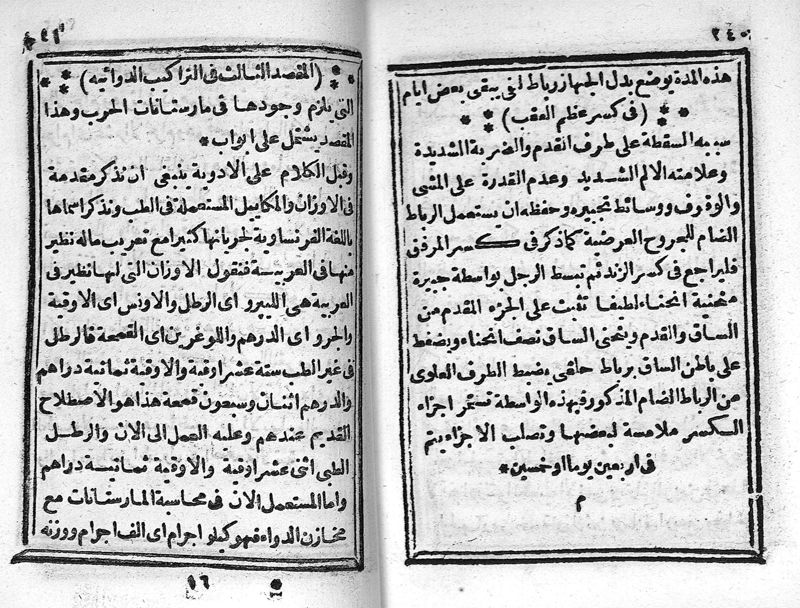 ٢٤٠
هذه المدة يوضع بدل الجهاز رباط لفي يبقى بعض ايام
* * (فى كسر عظم العقب) * *
سببه السقطة على طرف القدم والضربة الشديدة
وعلامته الالم الشديد وعدم القدرة على المشى
والوقوف ووسائط تجبيره وحفظه ان يستعمل الرباط
الضام للجروح العرضية كما ذكر فى كسر المرفق
فليراجع فى كسر الزند ثم تبسط الرجل بواسطة جبيرة
منحنية انحناء لطيفا تثبت على الجزء المقدم من
الساق والقدم وينحنى الساق نصف انحناء ويضغط
على باطن الساق برباط حلقى يضبط الطرف العلوى
من الرباط الضام المذكور فبهذه الواسطة تستمر اجزاء
الكسر ملامسة لبعضها وتصلب الاجزاء يتم
فى اربعين يوما او خمسين *
م
٢٤١
* * (المقصد الثالث فى التراكيب الدوائيه) * *
التى يلزم وجودها فى مارستانات الحرب وهذا
المقصد يشتمل على ابواب *
وقبل الكلام على الادوية ينبغى ان نذكر مقدمة
فى الاوزان والمكاييل المستعملة فى الطب ونذكر اسماها
باللغة الفرنساوية لجريانها كثيرا مع تعريب ماله نظير
منها فى العربيسة فنقول الاوزان التى لها نظير فى
العربية هى الليبرو اى الرطل والاونس اى الاوقية
والجرو اى الدرهم واللوغرين اى القمحة فالرطل
فى غير الطب ستة عشر اوقية والاوقية ثمانية دراهم
والدرهم اثنان وسبعون قمحة هذا هو الاصطلاح
القديم عندهم وعليه العمل الى الان والرطل
الطبى اثنى عشر اوقية والاوقية ثمانية دراهم
واما المستعمل الان فى محاسبة المارستانات مع
مخازن الدواء فهو كيلو اجرام اى الف اجرام ووزنه
١٦